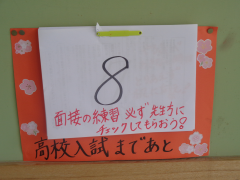 8
面接の練習 必ず先生方に
チェックしてもらおう!
高校入試まであと